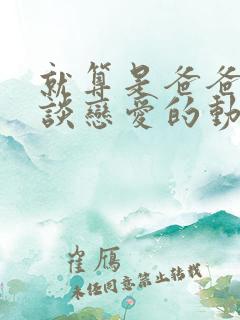 就算是爸爸
談戀愛的動
崔鴈
未经同意禁止转载